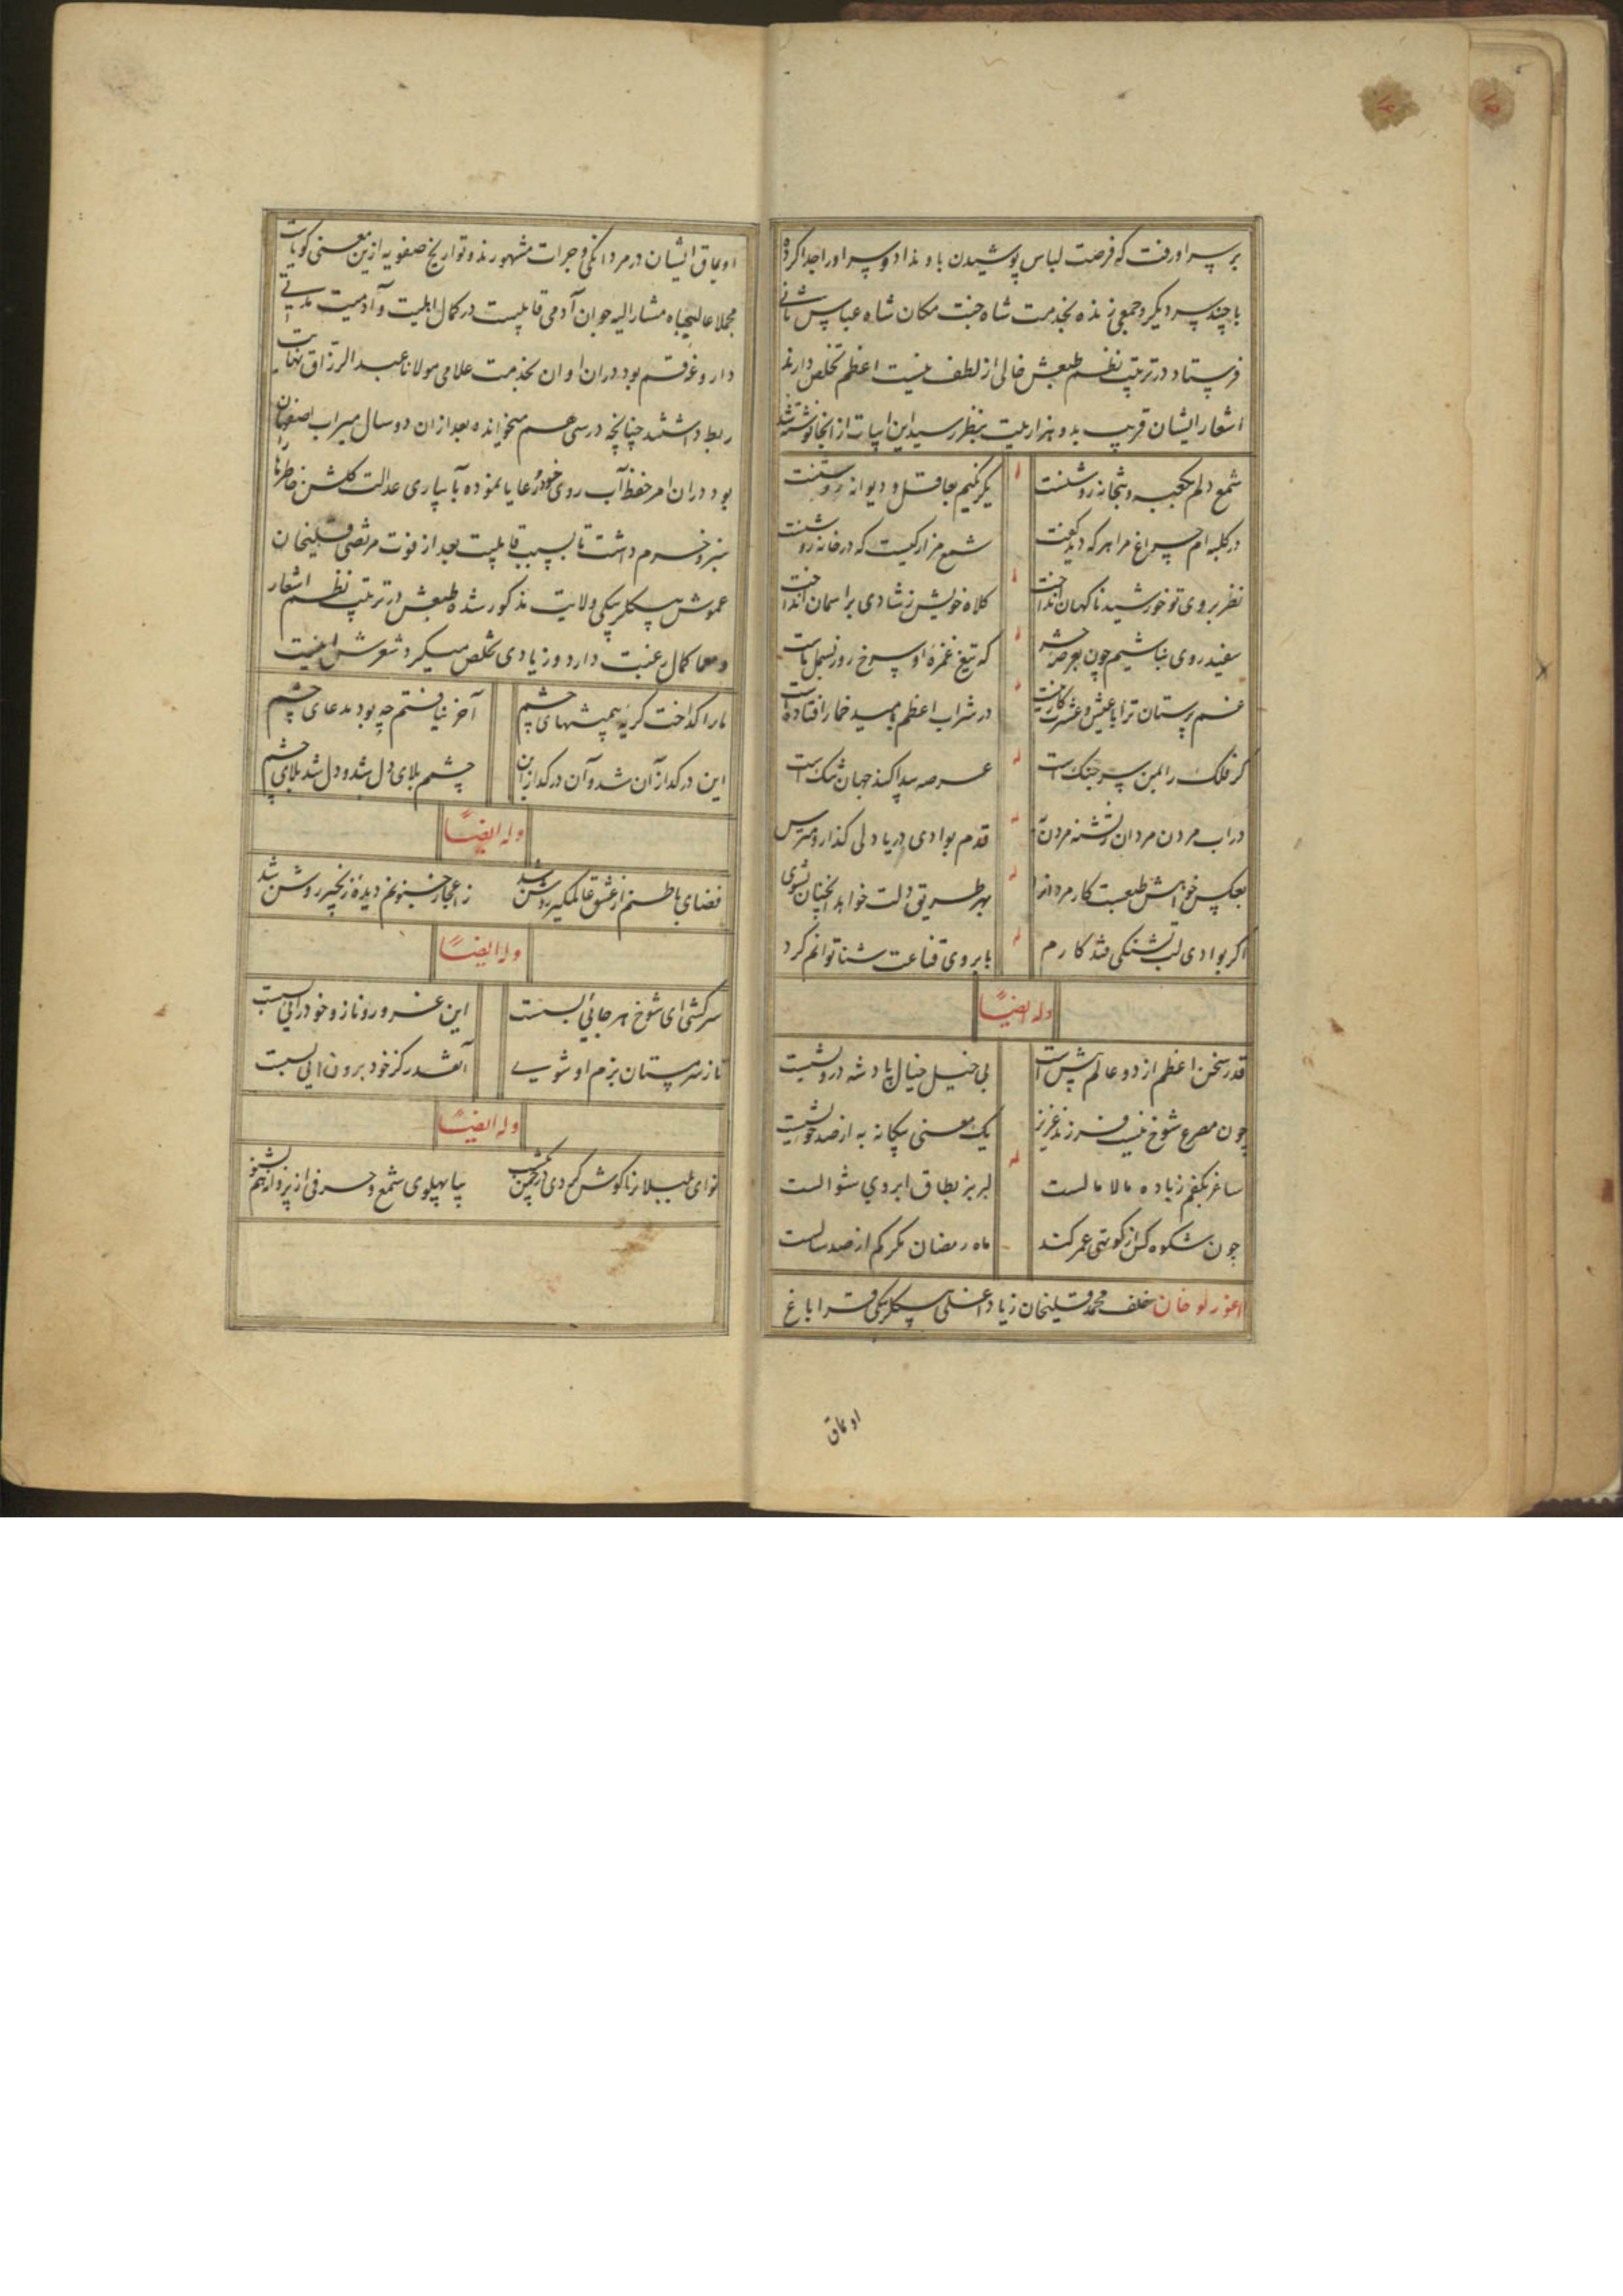 بر سر او رفت که فرصت لباس پوشیدن باو نداد و سر او را جدا کرده
با چند سر دیگر و جمعی زنده بخدمت شاه جنت مکان شاه عباس ثانی
فرستاد در ترتیب نظم طبعش خالی از لطف نیست اعظم تخلص دارند
اشعار ایشان قریب بدو هزار بیت بنظر رسید این ابیات از انجا نوشته شد
شمع دلم بکعبه و بتخانه روشنست یکرنگیم بعاقل و دیوانه روشنست
در کلبه ام چراغ مرا هر که دید گفت شمع مزار کیست که در خانه روشنست
نظر بروی تو خورشید ناکهان انداخت کلاه خویش ز شادی بر اسمان انداخت
سفید روی نباشیم چون بعرصه حشر که تیغ غمزه او سرخ رو ز بسمل ماست
غم پرستان ترا با عیش و عشرت کار نیست در شراب اعظم بامید خمار افتاده است
کر فلک را بمن سر جنک است عرصه پیدا کند جهان تنک است
در اب مردن مردان ز تشنه مردن قدم بوادی دریا دلی کذار و مترس
بعکس خواهش طبعت کار مردانرا بهر طریق دلت خواهد انچنان نشوی
اکر بوادی لب تشنکی فتد کارم بابروی قناعت شنا توانم کرد
وله ایضاً
قدر سخن اعظم از دو عالم پیش است بی خیل خیال پادشه درویشیست
چون مصرع شوخ نیست فرزند عزیز یک معنی بیکانه به از صد خویشیست
ساغر بکفم ز باده مالامالست لبریز بطاق ابروی شوالست
چون شکوه کس از کوتهی عمر کند ماه رمضان مکر کم از صد سالست
اغورلو خان خلف محمد قلیخان زیاد اغلی بیکلربیکی قراباغ
اویماق
اویماق ایشان در مردانکی و جرات مشهورند و تواریخ صفویه ازین معنی کویاست
مجملا عالیجاه مشار الیه جوان آدمی قابلیست در کمال اهلیت و آدمیت مدتی
داروغه قم بود در ان اوان بخدمت علامی مولانا عبد الرزاق نهایت
ربط داشتند چنانچه درسی هم میخوانده بعد ازان دو سال میراب اصفهان
بود دران امر حفظ آب روی خود و رعایا نموده بآبیاری عدالت کلشن خاطرها را
سبز و خرم داشت تا بسبب قابلیت بعد از فوت مرتضی قلیخان
عموش بیکلربیکی ولایت مذکور شده طبعش در ترتیب نظم اشعار
و معما کمال رغبت دارد و زیادی تخلص میکرد شعرش اینست
ما را کداخت کریه همیشهای چشم آخر نیافتم چه بود مدعای چشم
این در کداز آن شد و آن در کداز این چشم بلای دل شد و دل شد بلای چشم
وله ایضاً
فضای باطنم از عشق عالمکیر روشن شد ز اعجاز جنونم دیده زنجیر روشن شد
وله ایضاً
سرکشی ای شوخ هر جائی بسست این غرور و ناز و خودرائی بسست
تا ز سرمستان بزم او شوی آنقدر کز خود برون ائی بسست
وله ایضاً
نوای بلبلانرا کوش کردی در چمن بیا پهلوی شمع و حرفی از پروانه هم بشنو